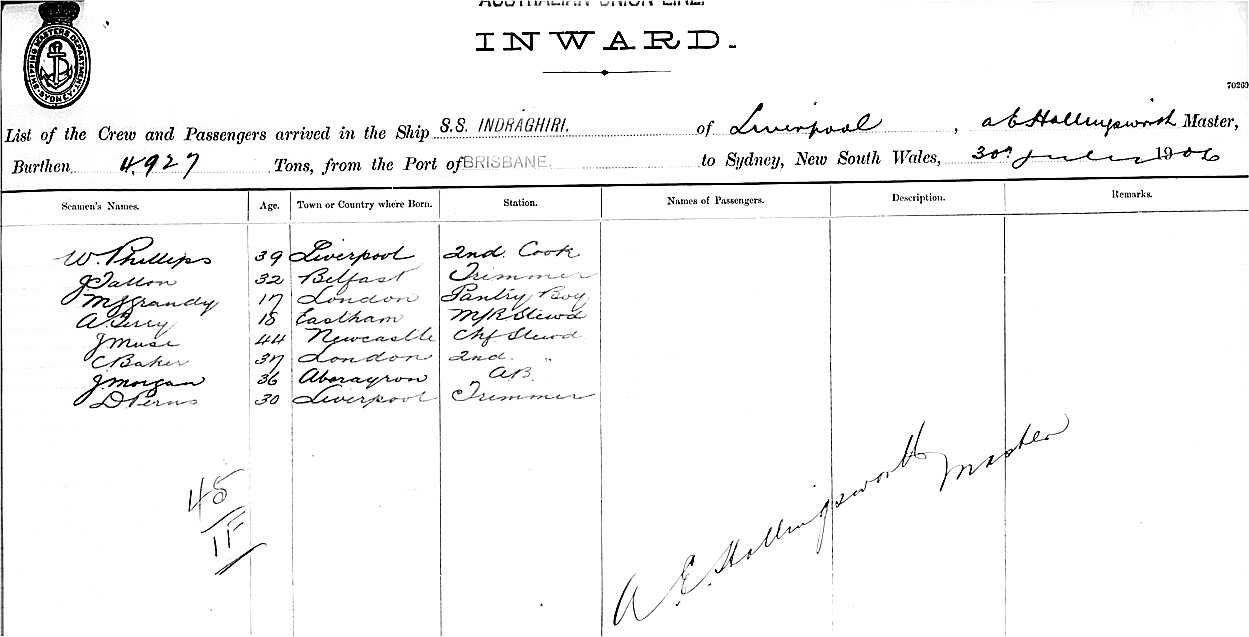 SHIPPING MASTERS DEPARTMENT SYDNEY
AUSTRALIAN UNION LINE.
INWARD.
70269
List of the Crew and Passengers arrived in the Ship S.S. INDRAGHIRI. of Liverpool, A E Hollingsworth Master,
Burthen 4.927 Tons, from the Port of BRISBANE. to Sydney, New South Wales, 30th July 1906
Seamen's Names. Age. Town or Country where Born. Station. Names of Passengers. Description. Remarks.
W. Phillips 39 Liverpool 2nd. Cook
J Fallon 32 Belfast Trimmer
M J Grandy 17 London Pantry Boy
A. Perry 18 Eastham M/R Stewd
J Muse 44 Newcastle Chf Stewd
C Baker 37 London 2nd. "
J. Morgan 36 Aberayron A.B.
D 30 Liverpool Trimmer
45
1F
A. E. Hollingsworth Master